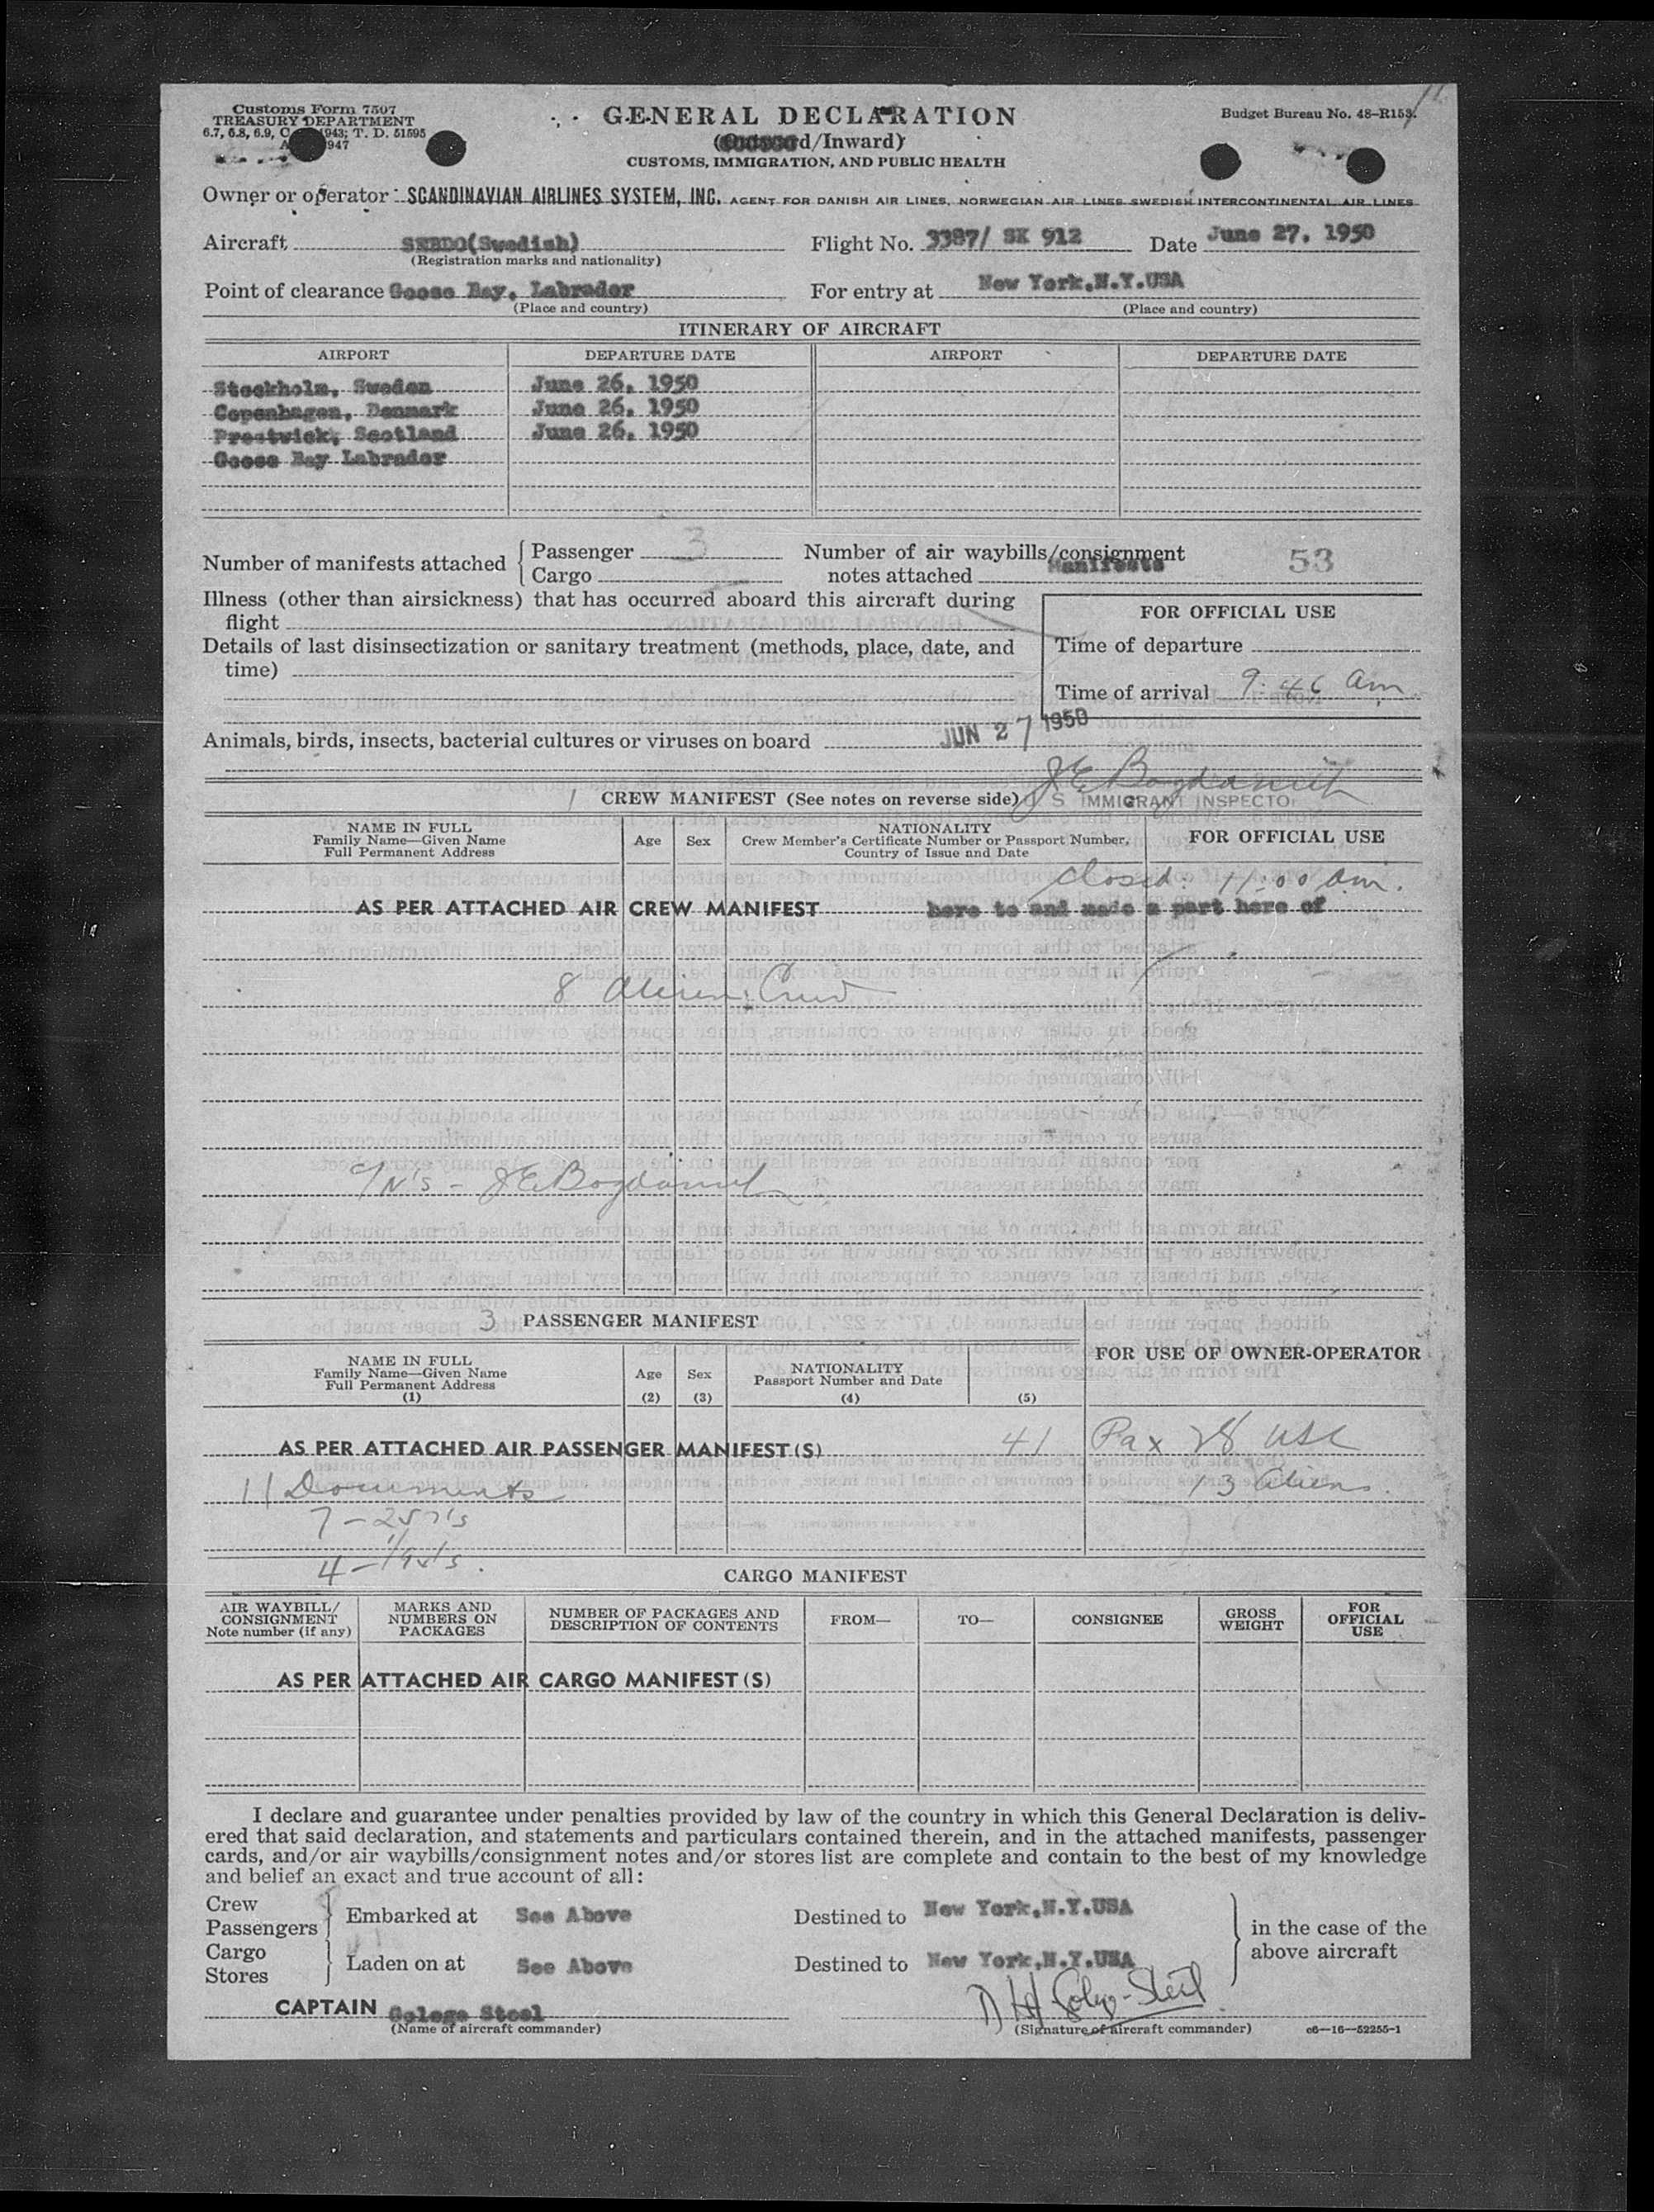 Customs Form 7507
TREASURY DEPARTMENT
6.7, 6.8, 6.9, 1943; T. D. 51595
1947
GENERAL DECLARATION
d/Inward)
CUSTOMS, IMMIGRATION, AND PUBLIC HEALTH
Budget Bureau No. 48-R153.
Owner or operator SCANDINAVIAN AIRLINES SYSTEM, INC. AGENT FOR DANISH AIR LINES, NORWEGIAN AIR LINES SWEDISH INTERCONTINENTAL AIR LINES
Aircraft SEBDO(Swedish) Flight No. 3387/ SK 912 Date June 27, 1950
(Registration marks and nationality)
Point of clearance Goose Bay, Labrador For entry at New York,N.Y.USA
(Place and country) (Place and country)
ITINERARY OF AIRCRAFT
AIRPORT DEPARTURE DATE AIRPORT DEPARTURE DATE
Stockholm, Sweden June 26, 1950
Copenhagen, Denmark June 26, 1950
Prestwick, Scotland June 26, 1950
Goose Bay Labrador
Number of manifests attached { Passenger 3 Number of air waybills/consignment 53
Cargo notes attached Manifests
Illness (other than airsickness) that has occurred aboard this aircraft during
flight
Details of last disinsectization or sanitary treatment (methods, place, date, and
time)
FOR OFFICIAL USE
Time of departure
Time of arrival 9:46 am.
Animals, birds, insects, bacterial cultures or viruses on board JUN 27 1950
J E Bogdanich
1 CREW MANIFEST (See notes on reverse side) U S IMMIGRANT INSPECTOR
NAME IN FULL
Family Name—Given Name
Full Permanent Address
Age Sex
NATIONALITY
Crew Member's Certificate Number or Passport Number,
Country of Issue and Date
FOR OFFICIAL USE
closed: 11:00 am.
AS PER ATTACHED AIR CREW MANIFEST here to and made a part here of
8 Alien Crew
J E Bogdanich
3 PASSENGER MANIFEST
NAME IN FULL
Family Name—Given Name
Full Permanent Address
(1)
Age
(2)
Sex
(3)
NATIONALITY
Passport Number and Date
(4) (5)
FOR USE OF OWNER-OPERATOR
AS PER ATTACHED AIR PASSENGER MANIFEST(S) 41 Pax 28 USC
11 Documents 13 Aliens.
7 - 257's
4 -
CARGO MANIFEST
AIR WAYBILL/
CONSIGNMENT
Note number (if any)
MARKS AND
NUMBERS ON
PACKAGES
NUMBER OF PACKAGES AND
DESCRIPTION OF CONTENTS
FROM— TO— CONSIGNEE
GROSS
WEIGHT
FOR
OFFICIAL
USE
AS PER ATTACHED AIR CARGO MANIFEST(S)
I declare and guarantee under penalties provided by law of the country in which this General Declaration is deliv-
ered that said declaration, and statements and particulars contained therein, and in the attached manifests, passenger
cards, and/or air waybills/consignment notes and/or stores list are complete and contain to the best of my knowledge
and belief an exact and true account of all:
Crew
Passengers } Embarked at See Above Destined to New York,N.Y.USA
Cargo
Stores } Laden on at See Above Destined to New York,N.Y.USA
} in the case of the
above aircraft
CAPTAIN Golege Steel
(Name of aircraft commander) (Signature of aircraft commander) c6—16—52255-1